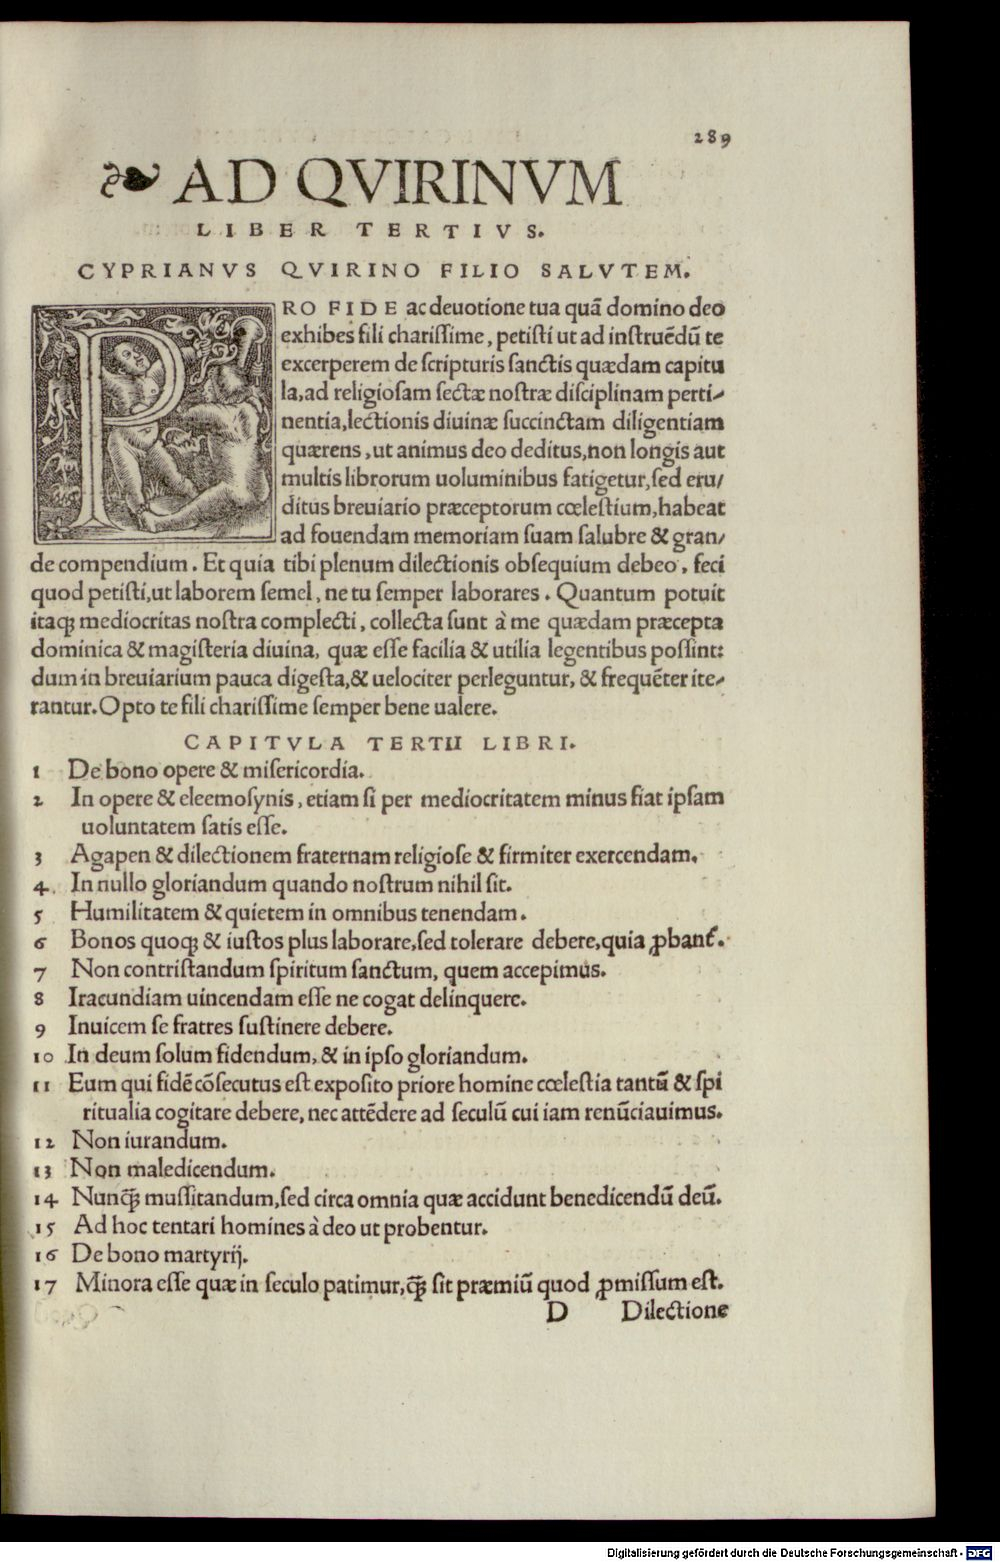 289
❧ AD QVIRINVM
LIBER TERTIVS.
CYPRIANVS QVIRINO FILIO SALVTEM.
PRO FIDE ac deuotione tua quā domino deo
exhibes fili chariſſime, petiſti ut ad inſtruēdū te
excerperem de ſcripturis ſanctis quædam capitu
la, ad religioſam ſectæ noſtræ diſciplinam perti-
nentia, lectionis diuinæ ſuccinctam diligentiam
quærens, ut animus deo deditus, non longis aut
multis librorum uoluminibus fatigetur, ſed eru/
ditus breuiario præceptorum cœleſtium, habeat
ad fouendam memoriam ſuam ſalubre & gran/
de compendium. Et quia tibi plenum dilectionis obſequium debeo, feci
quod petiſti, ut laborem ſemel, ne tu ſemper laborares. Quantum potuit
itaqꝫ mediocritas noſtra complecti, collecta ſunt à me quædam præcepta
dominica & magiſteria diuina, quæ eſſe facilia & utilia legentibus poſſint:
dum in breuiarium pauca digeſta, & uelociter perleguntur, & frequēter ite-
rantur. Opto te fili chariſſime ſemper bene ualere.
CAPITVLA TERTII LIBRI.
1 De bono opere & miſericordia.
2 In opere & eleemoſynis, etiam ſi per mediocritatem minus fiat ipſam
uoluntatem ſatis eſſe.
3 Agapen & dilectionem fraternam religioſe & firmiter exercendam.
4 In nullo gloriandum quando noſtrum nihil ſit.
5 Humilitatem & quietem in omnibus tenendam.
6 Bonos quoqꝫ & iuſtos plus laborare, ſed tolerare debere, quia ꝓbant᷑.
7 Non contriſtandum ſpiritum ſanctum, quem accepimus.
8 Iracundiam uincendam eſſe ne cogat delinquere.
9 Inuicem ſe fratres ſuſtinere debere.
10 In deum ſolum fidendum, & in ipſo gloriandum.
11 Eum qui fidē cōſecutus eſt expoſito priore homine cœleſtia tantū & ſpi
ritualia cogitare debere, nec attēdere ad ſeculū cui iam renūciauimus.
12 Non iurandum.
13 Non maledicendum.
14 Nunꝗ̄ꝫ muſſitandum, ſed circa omnia quæ accidunt benedicendū deū.
15 Ad hoc tentari homines à deo ut probentur.
16 De bono martyrij.
17 Minora eſſe quæ in ſeculo patimur, ꝗ̄ꝫ ſit præmiū quod ꝓmiſſum eſt.
D Dilectione
Digitalisierung gefördert durch die Deutsche Forschungsgemeinschaft - DFG